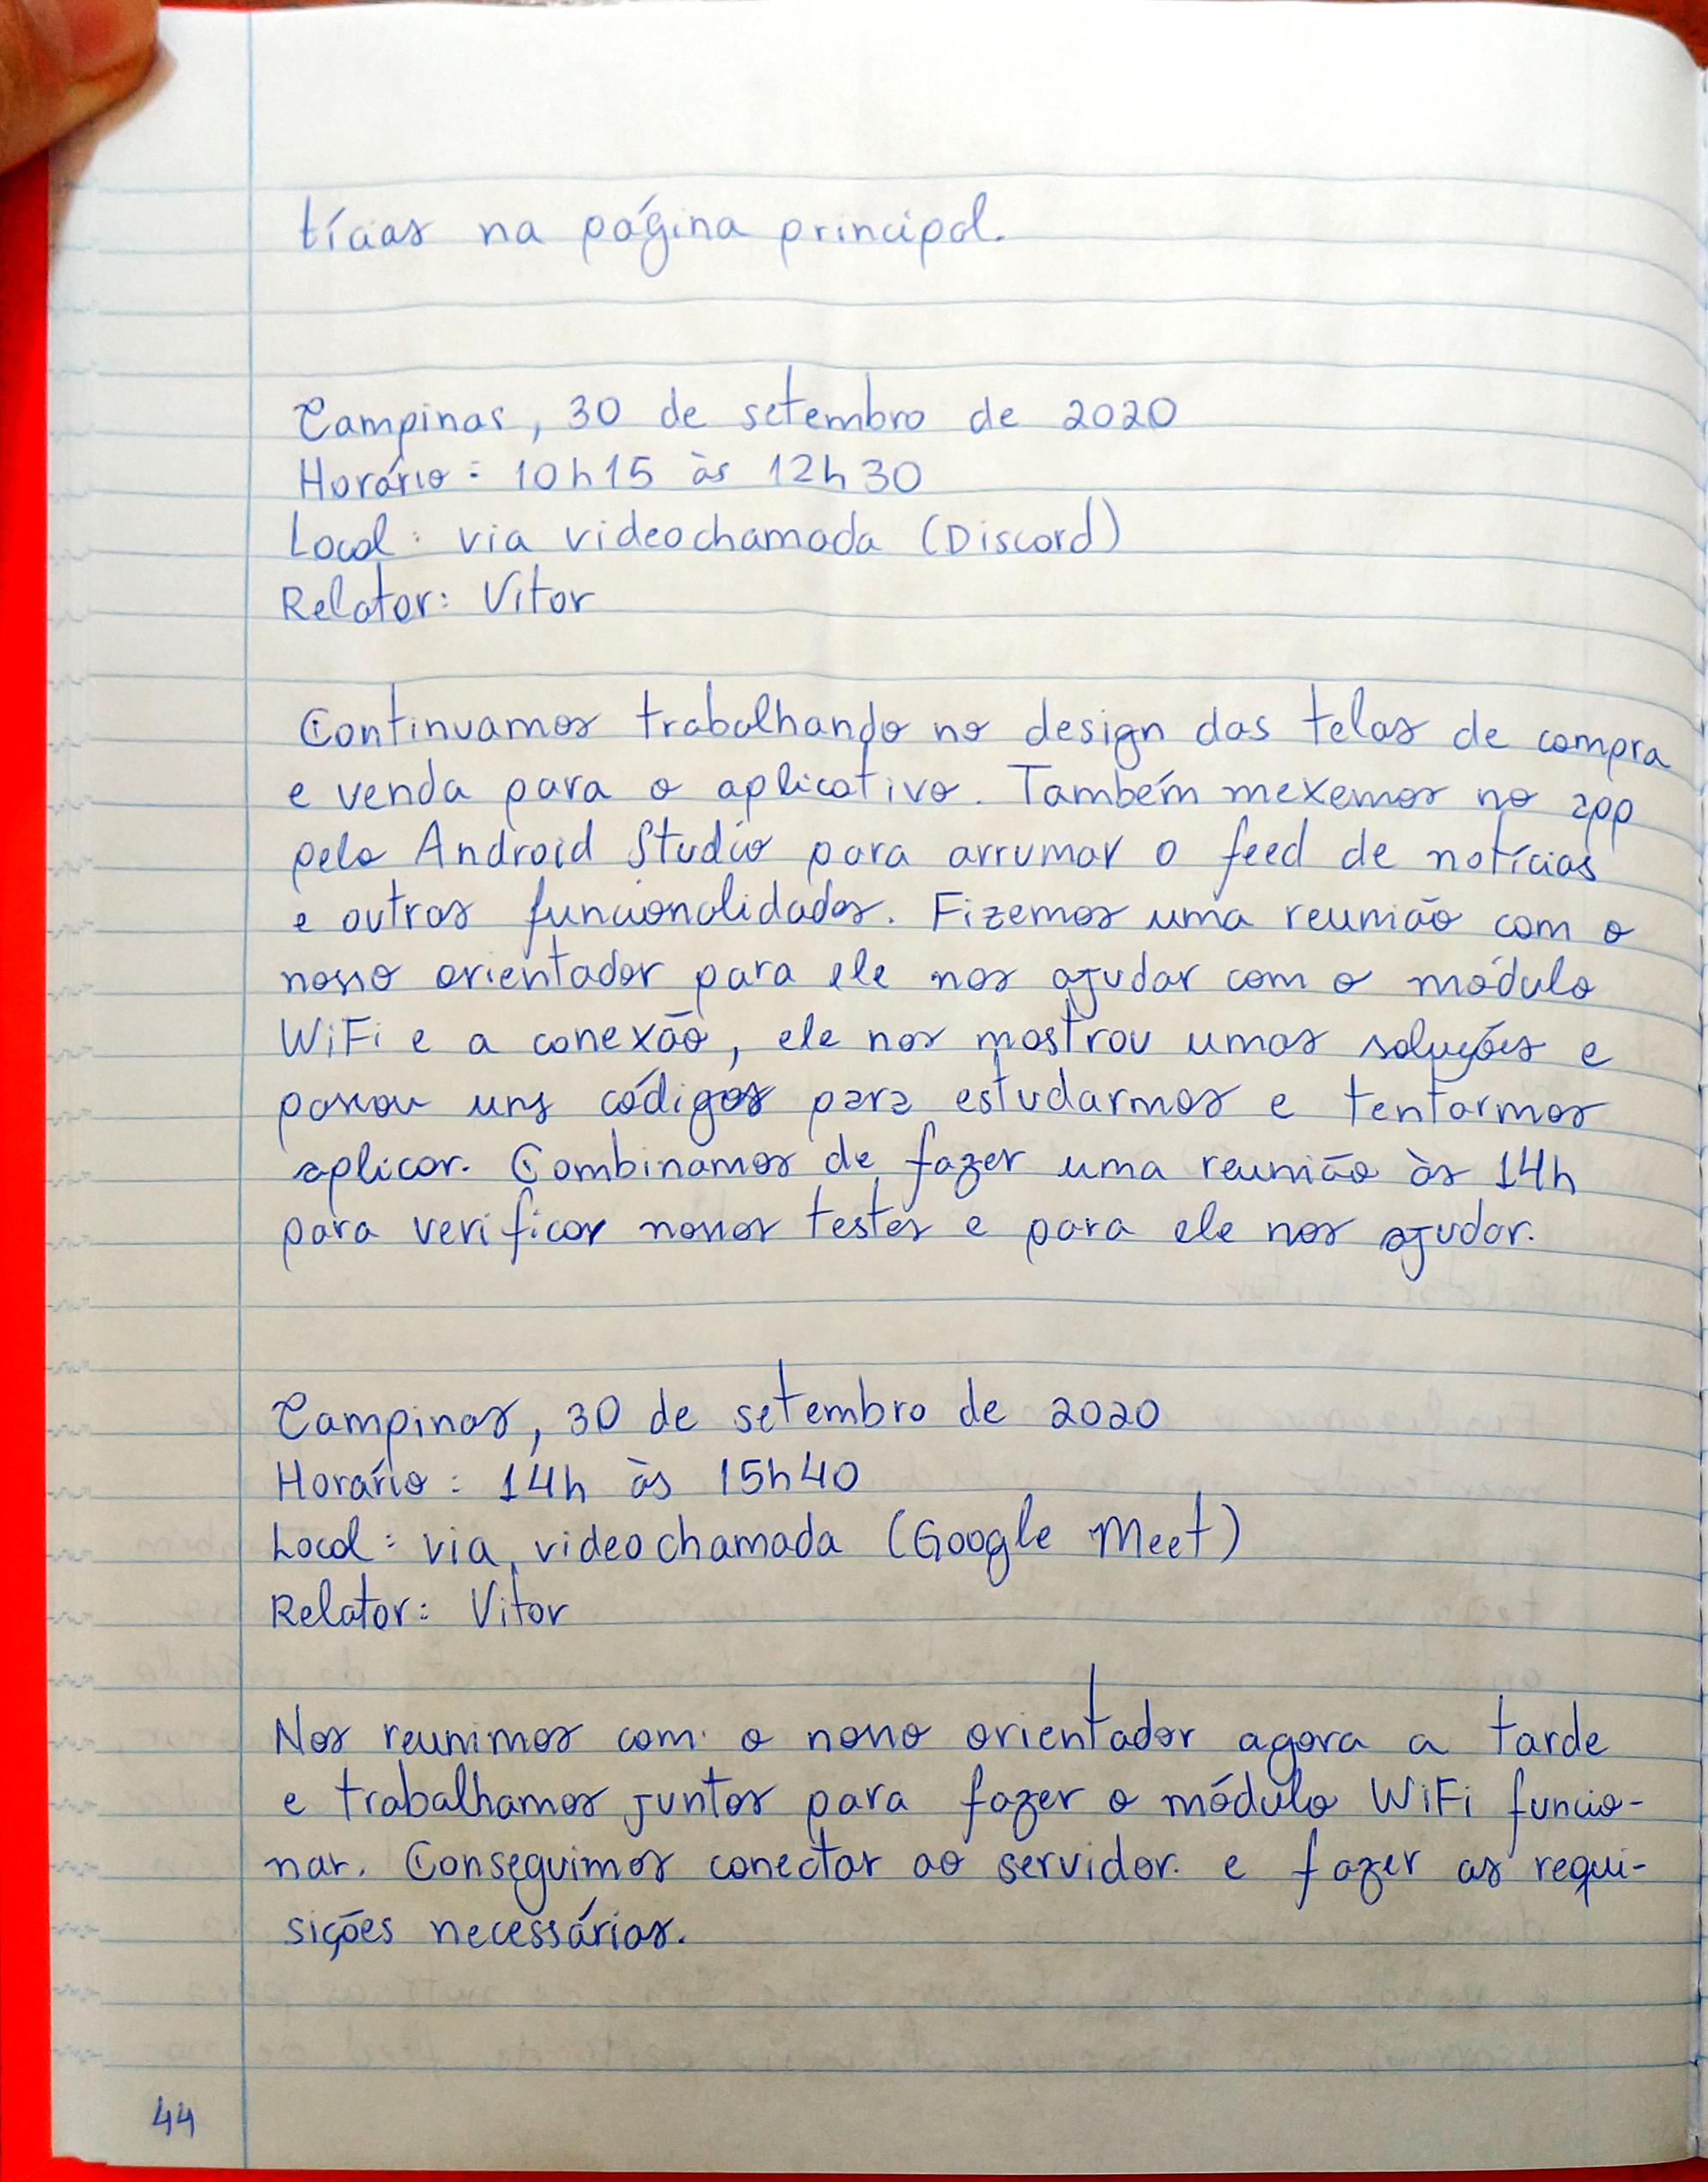 tícias na página principal.
Campinas, 30 de setembro de 2020
Horário: 10h15 às 12h30
Local: via videochamada (Discord)
Relator: Vitor
Continuamos trabalhando no design das telas de compra
e venda para o aplicativo. Também mexemos no app
pelo Android Studio para arrumar o feed de notícias
e outras funcionalidades. Fizemos uma reunião com o
nosso orientador para ele nos ajudar com o módulo
WiFi e a conexão, ele nos mostrou umas soluções e
passou uns códigos para estudarmos e tentarmos
aplicar. Combinamos de fazer uma reunião às 14h
para verificar nossos testes e para ele nos ajudar.
Campinas, 30 de setembro de 2020
Horário: 14h às 15h40
Local: via videochamada (Google Meet)
Relator: Vitor
Nos reunimos com o nosso orientador agora a tarde
e trabalhamos juntos para fazer o módulo WiFi funcio-
nar. Conseguimos conectar ao servidor e fazer as requi-
sições necessárias.
44